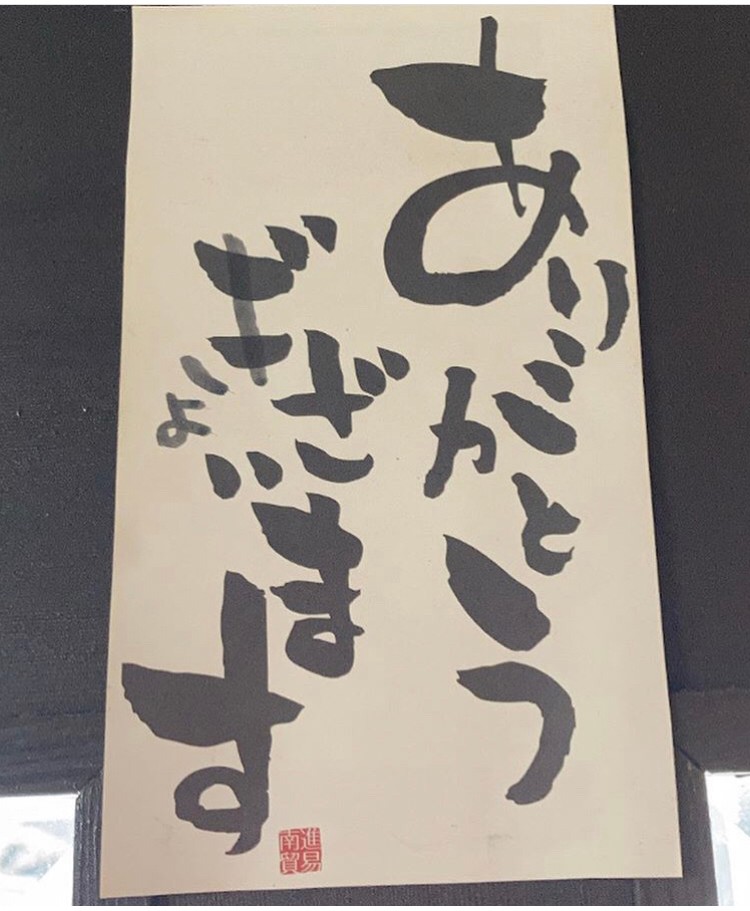 ありがとう
ございます
南進
貿易